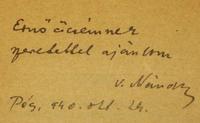 Ernő öcsémnek
szeretettel ajánlom
v. Nándor
Pég, 940. okt. 24.